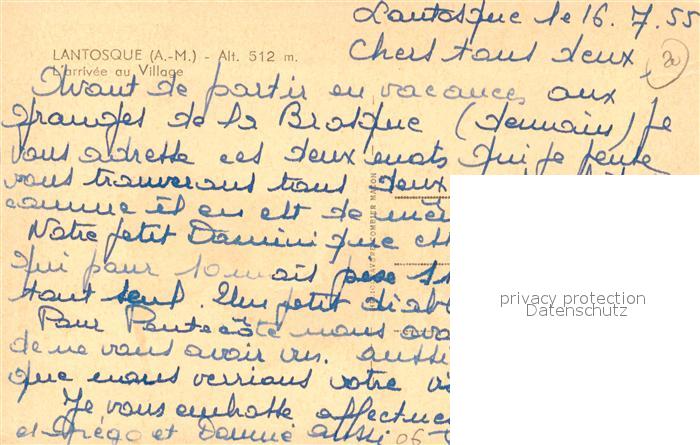 Lantosque le 16.7.55
Chers tous deux,
20
LANTOSQUE (A.-M.) - Alt. 512 m.
L'arrivée au Village
Avant de partir en vacances aux
granges de la Brasque (demain) Je
vous adresse ces deux mots qui je pense
vous trouverons tous deux
comme il en est de mê
Notre petit Dominique es
qui pour 10 mois pèse
tout seul. Un petit diab
Pour Pentecôte nous avo
de ne vous avoir vu. aussi
que nous verrions votre
Je vous embrasse affectue
et Dominé aussi 06
COMBIER MACON
privacy protection
Datenschutz